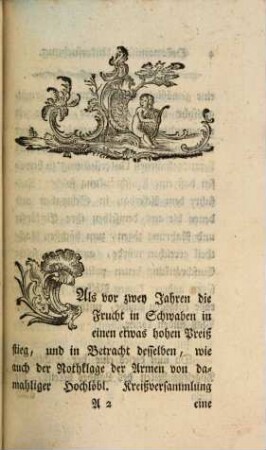 Als vor zwey Jahren die
Frucht in Schwaben in
einen etwas hohen Preiß
stieg, und in Betracht desselben, wie
auch der Nothklage der Armen von da-
mahliger Hochlöbl. Kreißversammlung
A 2 eine